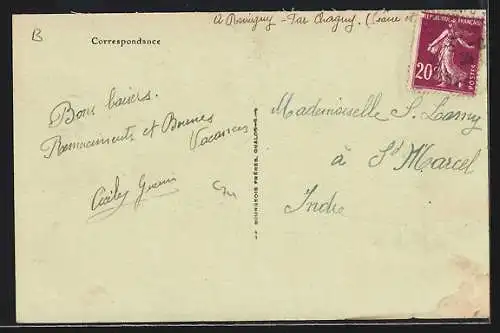 B
à Remigny - Par Chagny. (Saône et
Correspondance
REPUBLIQUE FRANÇAISE
20c
POSTES
Bons baisers.
Remerciements et Bonnes
Vacances
Cécile
BOURGEOIS FRÈRES, CHALON-S-S
Mademoiselle S. Lamy
à St Marcel
Indre